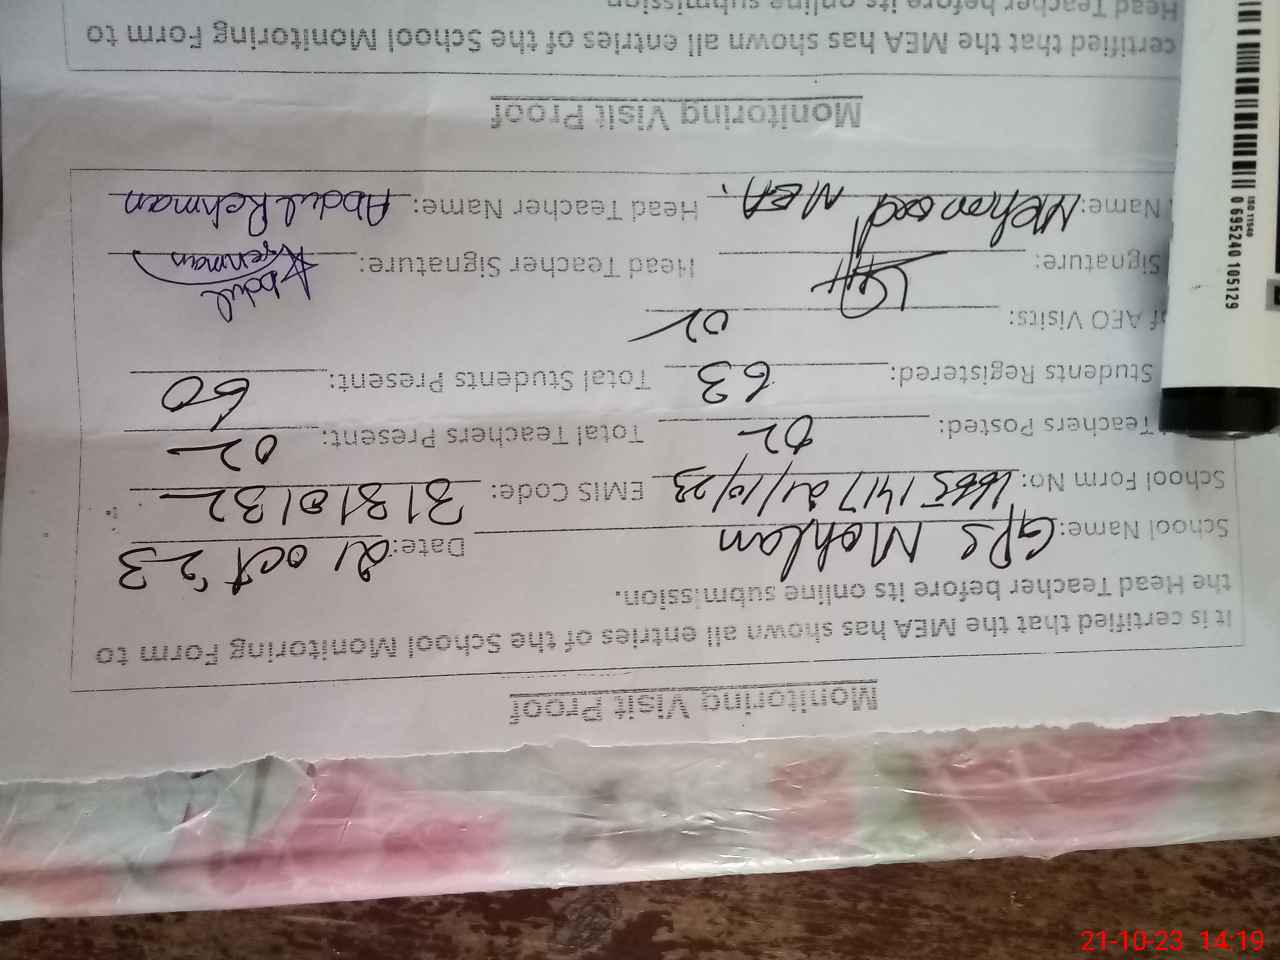 Monitoring Visit Proof
It is certified that the MEA has shown all entries of the School Monitoring Form to
the Head Teacher before its online submission.
School Name: GPS Mohlan Date: 21 oct 23
School Form No: 1665141721/10/23 EMIS Code: 31310132
Teachers Posted: 02 Total Teachers Present: 02
Students Registered: 63 Total Students Present: 60
of AEO Visits: 02
Signature: Head Teacher Signature: Abdul Rehman
Name: MEA. Head Teacher Name: Abdul Rehman
Monitoring Visit Proof
certified that the MEA has shown all entries of the School Monitoring Form to
Head Teacher before its online submission
ISO 11540
0 695240 105129
21-10-23 14:19